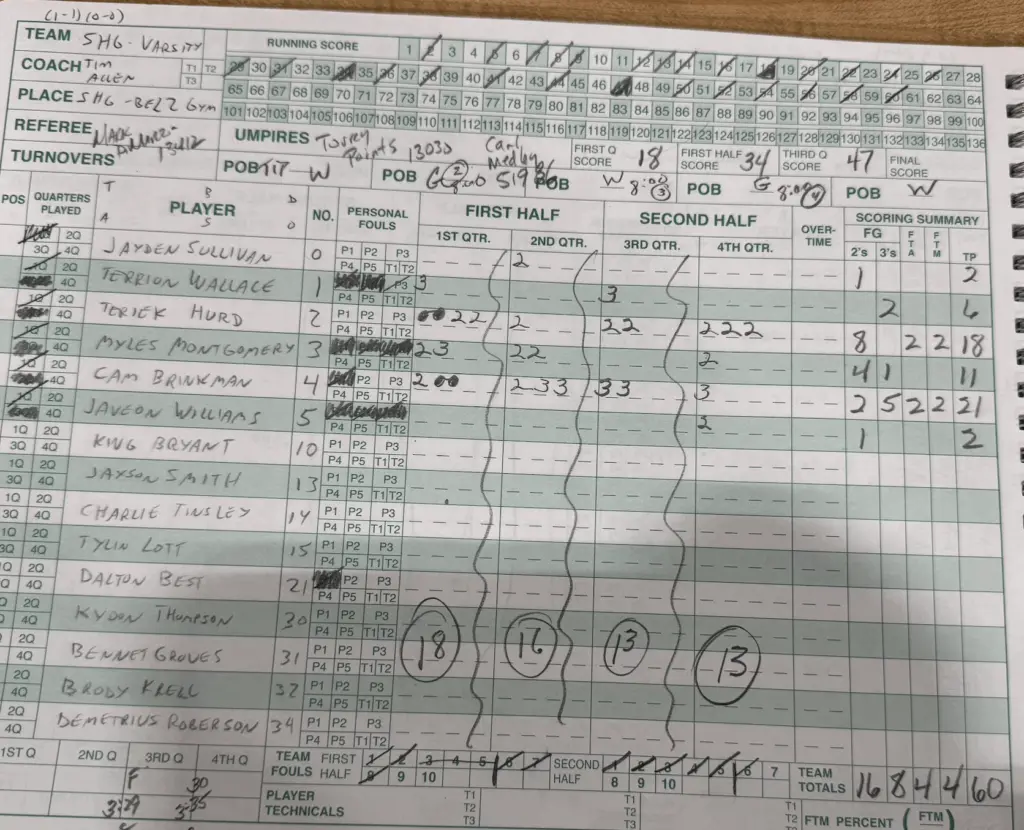 (1-1)(0-0)
TEAM SHG-VARSITY RUNNING SCORE 1 2 3 4 5 6 7 8 9 10 11 12 13 14 15 16 17 18 19 20 21 22 23 24 25 26 27 28
COACH TIM ALLEN T1 T2 T3 29 30 31 32 33 34 35 36 37 38 39 40 41 42 43 44 45 46 47 48 49 50 51 52 53 54 55 56 57 58 59 60 61 62 63 64
PLACE SHG-BELZ GYM 65 66 67 68 69 70 71 72 73 74 75 76 77 78 79 80 81 82 83 84 85 86 87 88 89 90 91 92 93 94 95 96 97 98 99 100
101 102 103 104 105 106 107 108 109 110 111 112 113 114 115 116 117 118 119 120 121 122 123 124 125 126 127 128 129 130 131 132 133 134 135 136
REFEREE UMPIRES Torry Points 13030 Carl FIRST Q SCORE 18 FIRST HALF SCORE 34 THIRD Q SCORE 47 FINAL SCORE
TURNOVERS POB TIP W POB G 2 POB W 8:00 3 POB G 8:00 4 POB W
POS QUARTERS PLAYED PLAYER NO. PERSONAL FOULS FIRST HALF SECOND HALF OVER-TIME SCORING SUMMARY
1ST QTR. 2ND QTR. 3RD QTR. 4TH QTR. FG 2's 3's FTA FTM TP
JAYDEN SULLIVAN 0 P1 P2 P3 P4 P5 T1 T2 2 1 2
TERRION WALLACE 1 P3 P4 P5 T1 T2 3 3 2 6
TERIEK HURD 2 P1 P2 P3 P4 P5 T1 T2 22 2 22 222 8 2 2 18
MYLES MONTGOMERY 3 P4 P5 T1 T2 23 22 2 4 1 11
CAM BRINKMAN 4 P2 P3 P4 P5 T1 T2 2 233 33 3 2 5 2 2 21
JAVEON WILLIAMS 5 P4 P5 T1 T2 2 1 2
KING BRYANT 10 P1 P2 P3 P4 P5 T1 T2
JAYSON SMITH 13 P1 P2 P3 P4 P5 T1 T2
CHARLIE TINSLEY 14 P1 P2 P3 P4 P5 T1 T2
TYLIN LOTT 15 P1 P2 P3 P4 P5 T1 T2
DALTON BEST 21 P2 P3 P4 P5 T1 T2
KYDON THOMPSON 30 P1 P2 P3 P4 P5 T1 T2 18 16 13 13
BENNET GROVES 31 P1 P2 P3 P4 P5 T1 T2
BRODY KRELL 32 P1 P2 P3 P4 P5 T1 T2
DEMETRIUS ROBERSON 34 P1 P2 P3 P4 P5 T1 T2
1ST Q 2ND Q 3RD Q 4TH Q TEAM FOULS FIRST HALF 1 2 3 4 5 6 7 8 9 10 SECOND HALF 1 2 3 4 5 6 7 8 9 10 TEAM TOTALS 16 8 4 4 60
F 30
3:29
PLAYER TECHNICALS T1 T2 T3 T1 T2 T3 T1 T2 T3 FTM PERCENT (FTM)